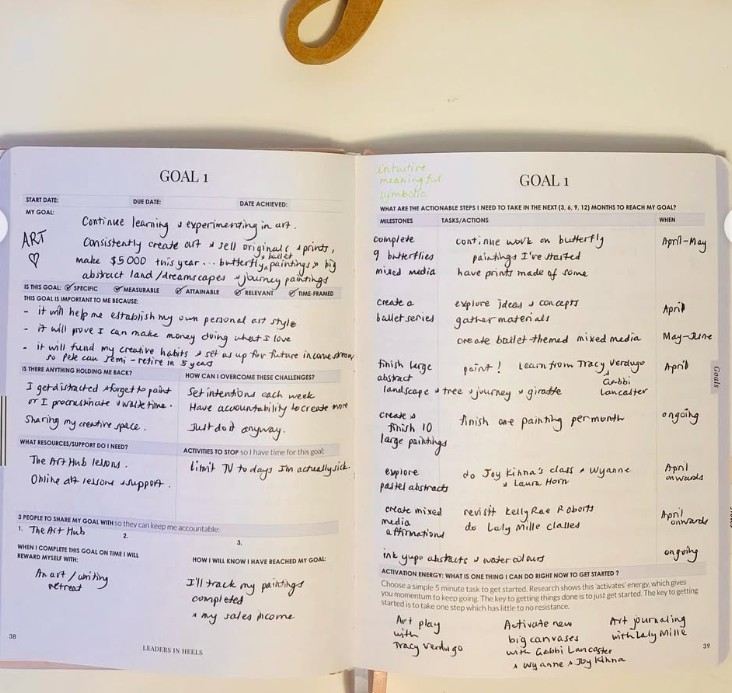 GOAL 1
START DATE:
DUE DATE:
DATE ACHIEVED:
MY GOAL:
ART
Continue learning & experimenting in art.
Consistently create art & sell originals & prints,
make $5000 this year... butterfly & ballet paintings & big
abstract land/dreamscapes & journey paintings
IS THIS GOAL: SPECIFIC MEASURABLE ATTAINABLE RELEVANT TIME-FRAMED
THIS GOAL IS IMPORTANT TO ME BECAUSE:
- it will help me establish my own personal art style
- it will prove I can make money doing what I love
- it will fund my creative habits & set us up for future income streams
so Pete can semi-retire in 5 years
IS THERE ANYTHING HOLDING ME BACK?
I get distracted & forget to paint
or I procrastinate & waste time.
Sharing my creative space.
HOW CAN I OVERCOME THESE CHALLENGES?
Set intentions each week
Have accountability to create more
Just do it anyway.
WHAT RESOURCES/SUPPORT DO I NEED?
The Art Hub lessons.
Online art lessons & support.
ACTIVITIES TO STOP so I have time for this goal:
Limit TV to days I'm actually sick.
3 PEOPLE TO SHARE MY GOAL WITH so they can keep me accountable:
1. The Art Hub
2.
3.
WHEN I COMPLETE THIS GOAL ON TIME I WILL
REWARD MYSELF WITH:
An art/writing
retreat
HOW WILL I KNOW I HAVE REACHED MY GOAL:
I'll track my paintings
completed
& my sales income
38
LEADERS IN HEELS
intuitive
meaningful
symbolic
GOAL 1
WHAT ARE THE ACTIONABLE STEPS I NEED TO TAKE IN THE NEXT (3, 6, 9, 12) MONTHS TO REACH MY GOAL?
MILESTONES
TASKS/ACTIONS
WHEN
complete
9 butterflies
mixed media
continue work on butterfly
paintings I've started
have prints made of some
April-May
create a
ballet series
explore ideas & concepts
gather materials
create ballet themed mixed media
April
May-June
finish large
abstract
landscape & tree & journey & giraffe
paint! learn from Tracy Verdugo
& Gabbi
Lancaster
April
create &
finish 10
large paintings
finish one painting per month
ongoing
explore
pastel abstracts
do Joy Kinna's class & Wyanne
& Laura Horn
April
onwards
create mixed
media
affirmations
revisit Kelly Rae Roberts
do Laly Mille classes
April
onwards
ink yupo abstracts & watercolours
ongoing
ACTIVATION ENERGY: WHAT IS ONE THING I CAN DO RIGHT NOW TO GET STARTED?
Choose a simple 5 minute task to get started. Research shows this 'activates' energy, which gives
you momentum to keep going. The key to getting things done is to just get started. The key to getting
started is to take one step which has little to no resistance.
Art play
with
Tracy Verdugo
Activate new
big canvases
with Gabbi Lancaster
& Wyanne & Joy Kinna
Art journaling
with Laly Mille
39
Goals